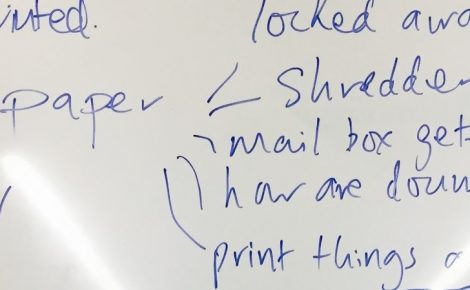 inted. locked awa
paper Shredde
mail box get
how are docum
print things a